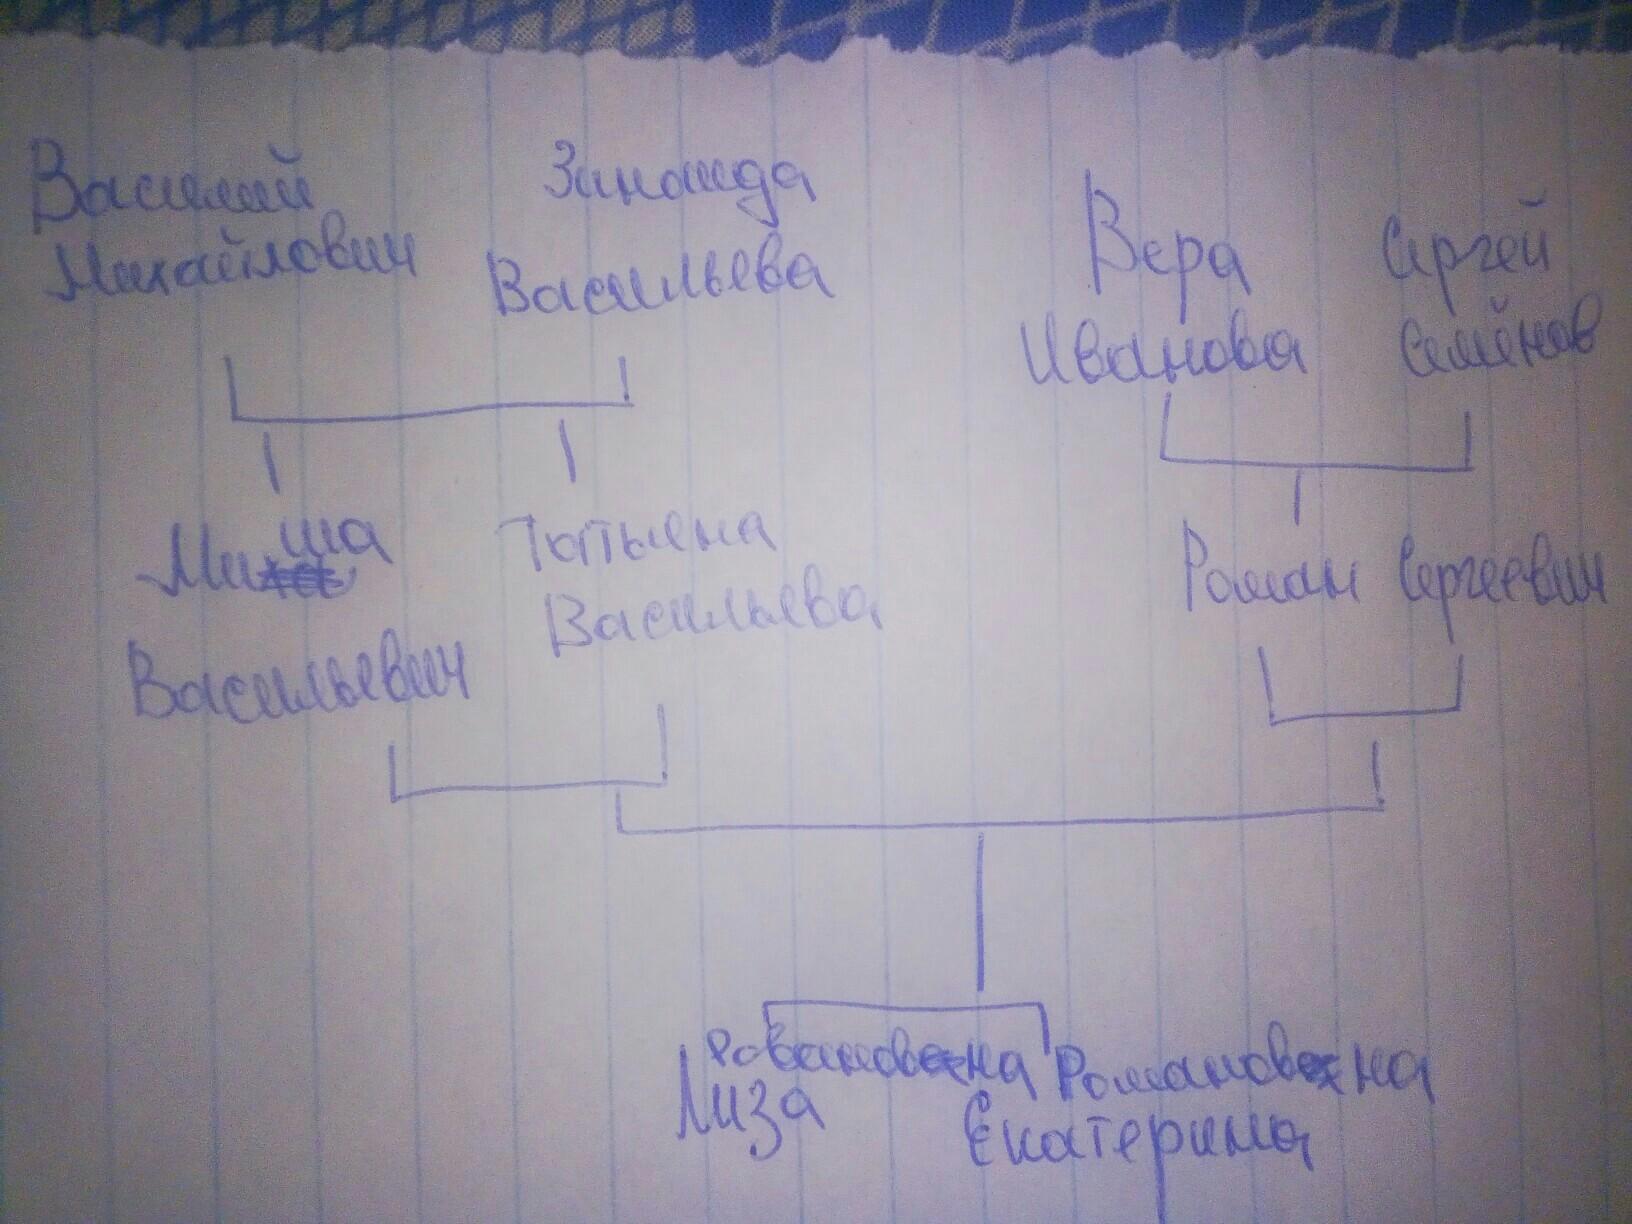 Василий
Михайлович
Зинаида
Васильева
Вера
Иванова
Сергей
Семёнов
Миша
Васильевич
Татьяна
Васильева
Роман Сергеевич
Романовна
Лиза
Романовна
Екатерина